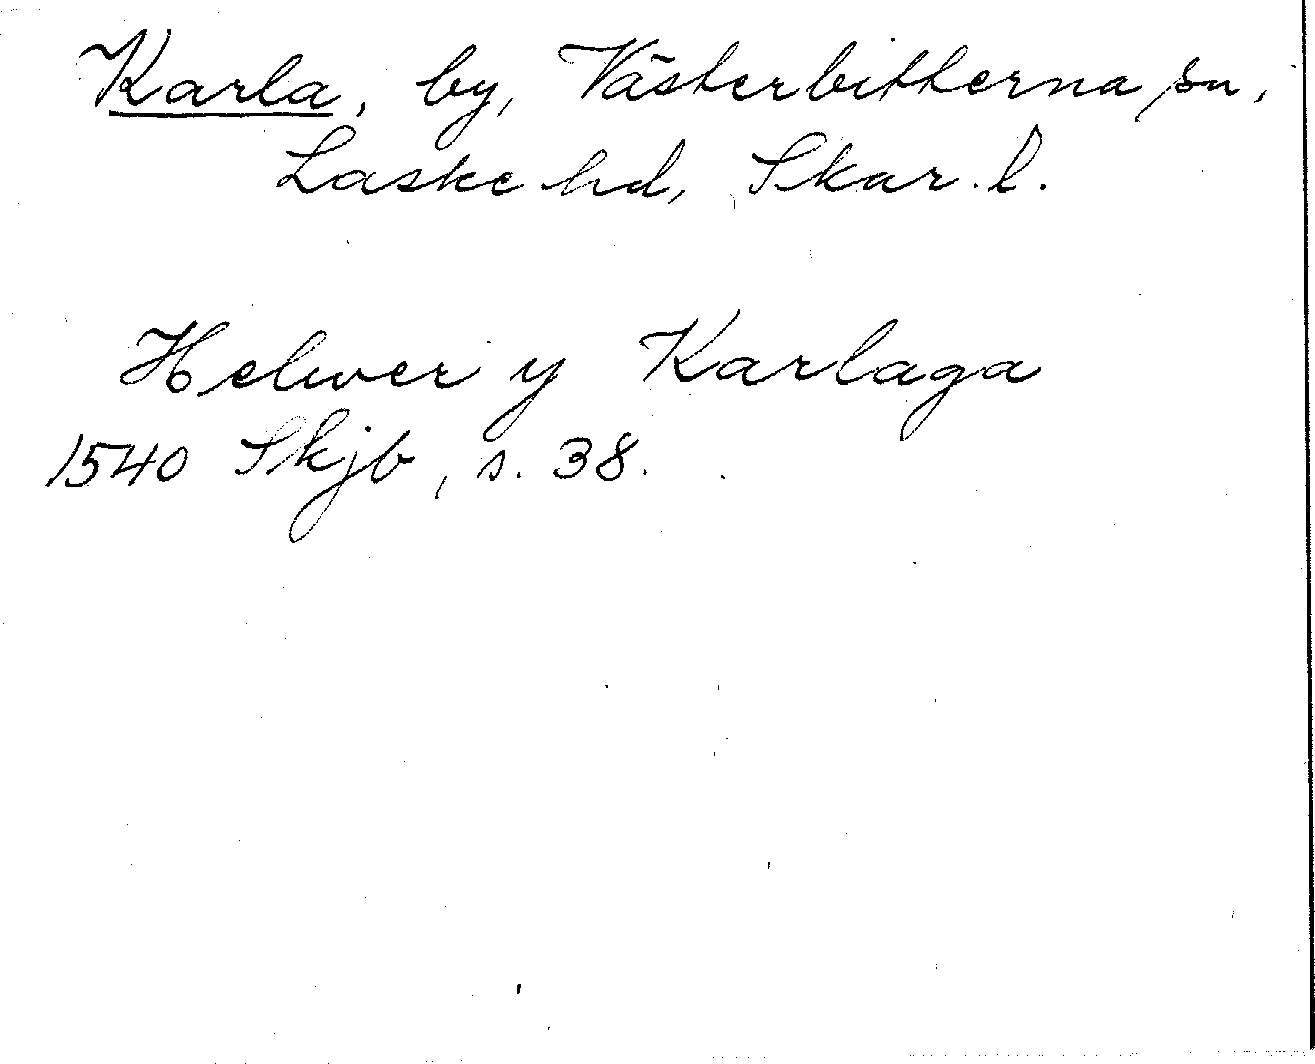 Karla, by, Västerbitterna sn,
Laske hd, Skar. l.
Helwer y Karlaga
1540 Skjb, s. 38.